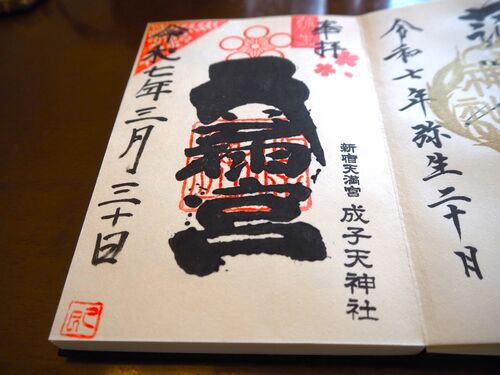 令和七年弥生二十日
奉拝
弥生
新宿天満宮 成子天神社
天満宮
令和七年三月三十日